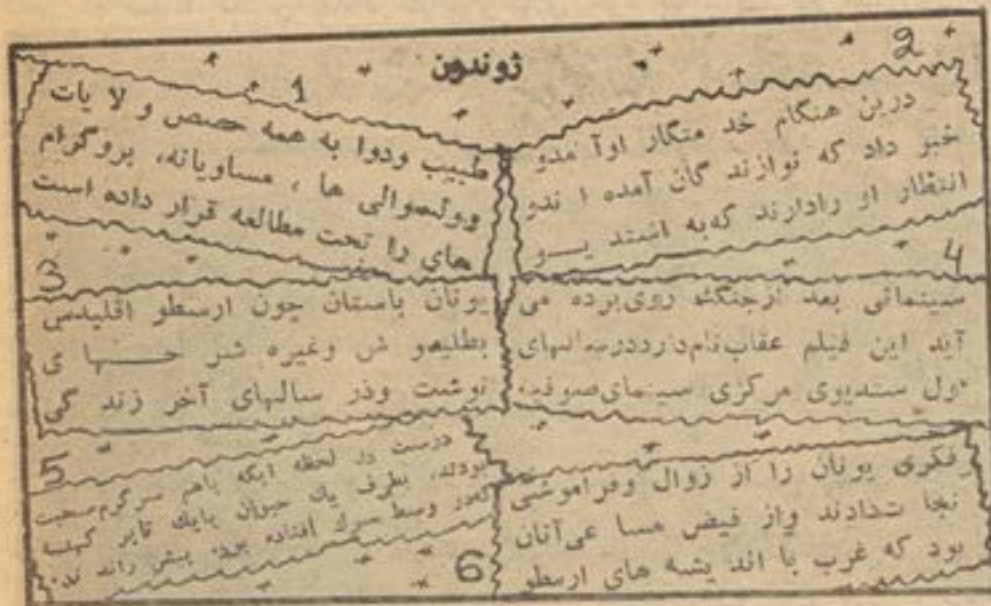 ژوندون
1
طبیب ودوا به همه حصص و لا یات
وولسوالی ها ، مساویانه، پروگرام
های را تحت مطالعه قرار داده است
2
درین هنگام خد متگار اوآ مدو
خبر داد که نوازند گان آمده ا ندو
انتظار او رادارند که به اشند یــو
3
یونان باستان چون ارسطو اقلیدس
بطلیمو س وغیره شر حــــها ی
نوشت ودر سالهای آخر زند گی
4
سینمائی بعد ازجنگ روی پرده می
آید این فیلم عقاب نام دارد در سالهای
ول ستدیوی مرکزی سینمای صوفیه
5
درست در لحظه ایکه باهم سرگرم صحبت
بودند، بطرف یک حیوان بایک تایر کهنه
که در وسط سرک افتاده بود پیش راند ند
6
فکری یونان را از زوال وفراموشی
نجا تدادند واز فیض مسا عی آنان
بود که غرب با اند یشه های ارسطو